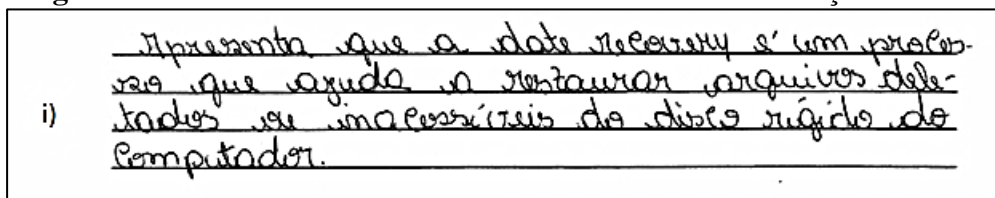 i)
Apresenta que a date recovery é um proces-
so que ajuda a restaurar arquivos dele-
tados ou inacessíveis do disco rígido do
computador.